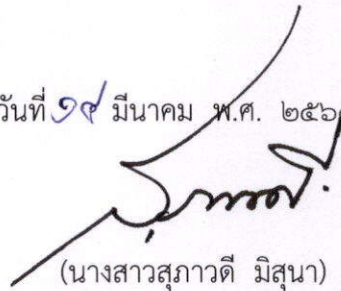 วันที่ ๑๙ มีนาคม พ.ศ. ๒๕๖
สุภาวดี
(นางสาวสุภาวดี มิสุนา)